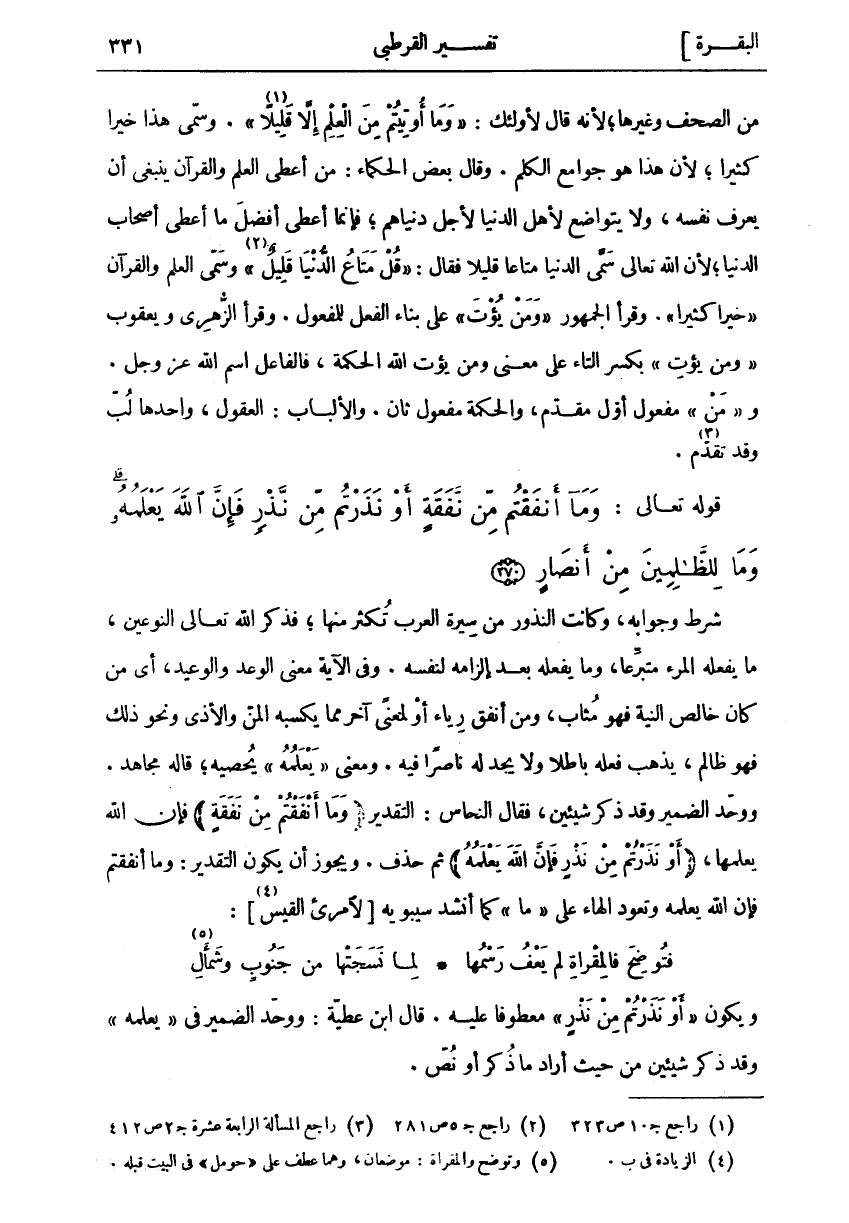 البقـــرة ] تفســـير القرطبى ٣٣١
من الصحف وغيرها؛لأنه قال لأولئك : « وَمَا أُوتِيتُمْ مِنَ الْعِلْمِ إِلَّا قَلِيلًا (١) » . وسمّى هذا خيرا
كثيرا ؛ لأن هذا هو جوامع الكلم . وقال بعض الحكماء : من أعطى العلم والقرآن ينبغى أن
يعرف نفسه ، ولا يتواضع لأهل الدنيا لأجل دنياهم ؛ فإنما أعطى أفضلَ ما أعطى أصحاب
الدنيا؛لأن الله تعالى سَمَّى الدنيا متاعا قليلا فقال : «قُلْ مَتَاعُ الدُّنْيَا قَلِيلٌ (٢) » وسَمّى العلم والقرآن
«خيرا كثيرا». وقرأ الجمهور «وَمَنْ يُؤْتَ» على بناء الفعل للمفعول . وقرأ الزُّهرِى و يعقوب
« ومن يؤتِ » بكسر التاء على معـنى ومن يؤت الله الحكمة ، فالفاعل اسم الله عز وجل .
و « مَنْ » مفعول أوّل مقـدّم، والحكمة مفعول ثان . والألبـاب : العقول ، واحدها لُبّ
وقد تقدّم (٣) .
قوله تعـالى : وَمَآ أَنفَقْتُم مِّن نَّفَقَةٍ أَوْ نَذَرْتُم مِّن نَّذْرٍ فَإِنَّ ٱللَّهَ يَعْلَمُهُۥ ۗ
وَمَا لِلظَّـٰلِمِينَ مِنْ أَنصَارٍ ٢٧٠
شرط وجوابه، وكانت النذور من سِيرة العرب تُكثر منها ؛ فذكر الله تعـالى النوعين ،
ما يفعله المرء متبرِّعا، وما يفعله بعـد إلزامه لنفسه . وفى الآية معنى الوعد والوعيد، أى من
كان خالص النية فهو مُثاب، ومن أنفق رِياء أوْ لمعنًى آخر مما يكسبه المنّ والأذى ونحو ذلك
فهو ظالم ، يذهب فعله باطلا ولا يجد له ناصرًا فيه . ومعنى « يَعْلَمُهُ » يُحصيه؛ قاله مجاهد .
ووحّد الضمير وقد ذكر شيئين، فقال النحاس : التقدير ﴿ وَمَا أَنْفَقْتُمْ مِنْ نَفَقَةٍ ﴾ فإن الله
يعلمها، ﴿أَوْ نَذَرْتُمْ مِنْ نَذْرٍ فَإِنَّ اللّهَ يَعْلَمُهُ﴾ ثم حذف . ويجوز أن يكون التقدير : وما أنفقتم
فإن الله يعلمه وتعود الهاء على « ما »كما أنشد سيبو يه [ لآمرئ القيس (٤) ] :
فتُوضِحَ فالمِقْراةِ لم يَعْفُ رَسْمُها * لِمـا نَسَجَتْها من جَنُوبٍ وشَمْأَلِ (٥)
و يكون « أَوْ نَذَرْتُمْ مِنْ نَذْرٍ» معطوفا عليـه . قال ابن عطيّة : ووحّد الضمير فى « يعلمه »
وقد ذكر شيئين من حيث أراد ما ذُكر أو نُصّ .
(١) راجع جـ ١٠ ص ٣٢٣ (٢) راجع جـ ٥ ص ٢٨١ (٣) راجع المسألة الرابعة عشرة جـ ٢ ص ٤١٢
(٤) الزيادة فى ب . (٥) وتوضح والمقراة : موضعان، وهما عطف على «حومل» فى البيت قبله .